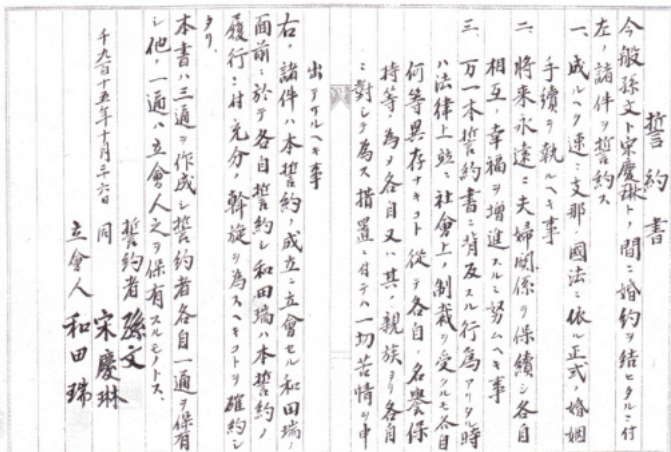 誓約書
今般孫文ト宋慶琳トノ間ニ婚約ヲ結ヒタルニ付
左ノ諸件ヲ誓約ス
一、成ルヘク速ニ支那ノ國法ニ依ル正式ノ婚姻
手續ヲ執ルヘキ事
二、將来永遠ニ夫婦関係ヲ保續シ各自
相互ノ幸福ヲ増進スルニ努ムヘキ事
三、万一本誓約書ニ背反スル行為アリタル時
ハ法律上並ニ社會上ノ制裁ヲ受クルモ各自
何等異存ナキコト従テ各自ノ名譽保
持等ノ為メ各自又ハ其ノ親族ヨリ各自
ニ對シテ為ス措置ニ付テハ一切苦情ヲ申
出テサルヘキ事
右ノ諸件ハ本誓約ノ成立ニ立會セル和田瑞ノ
面前ニ於テ各自誓約シ和田瑞ハ本誓約ノ
履行ニ付充分ノ斡旋ヲ為スヘキコトヲ確約シ
タリ、
本書ハ三通ヲ作成シ誓約者各自一通ヲ保有
シ他ノ一通ハ立會人之ヲ保有スルモノトス、
千九百十五年十月二六日
誓約者 孫文
同 宋慶琳
立會人 和田瑞